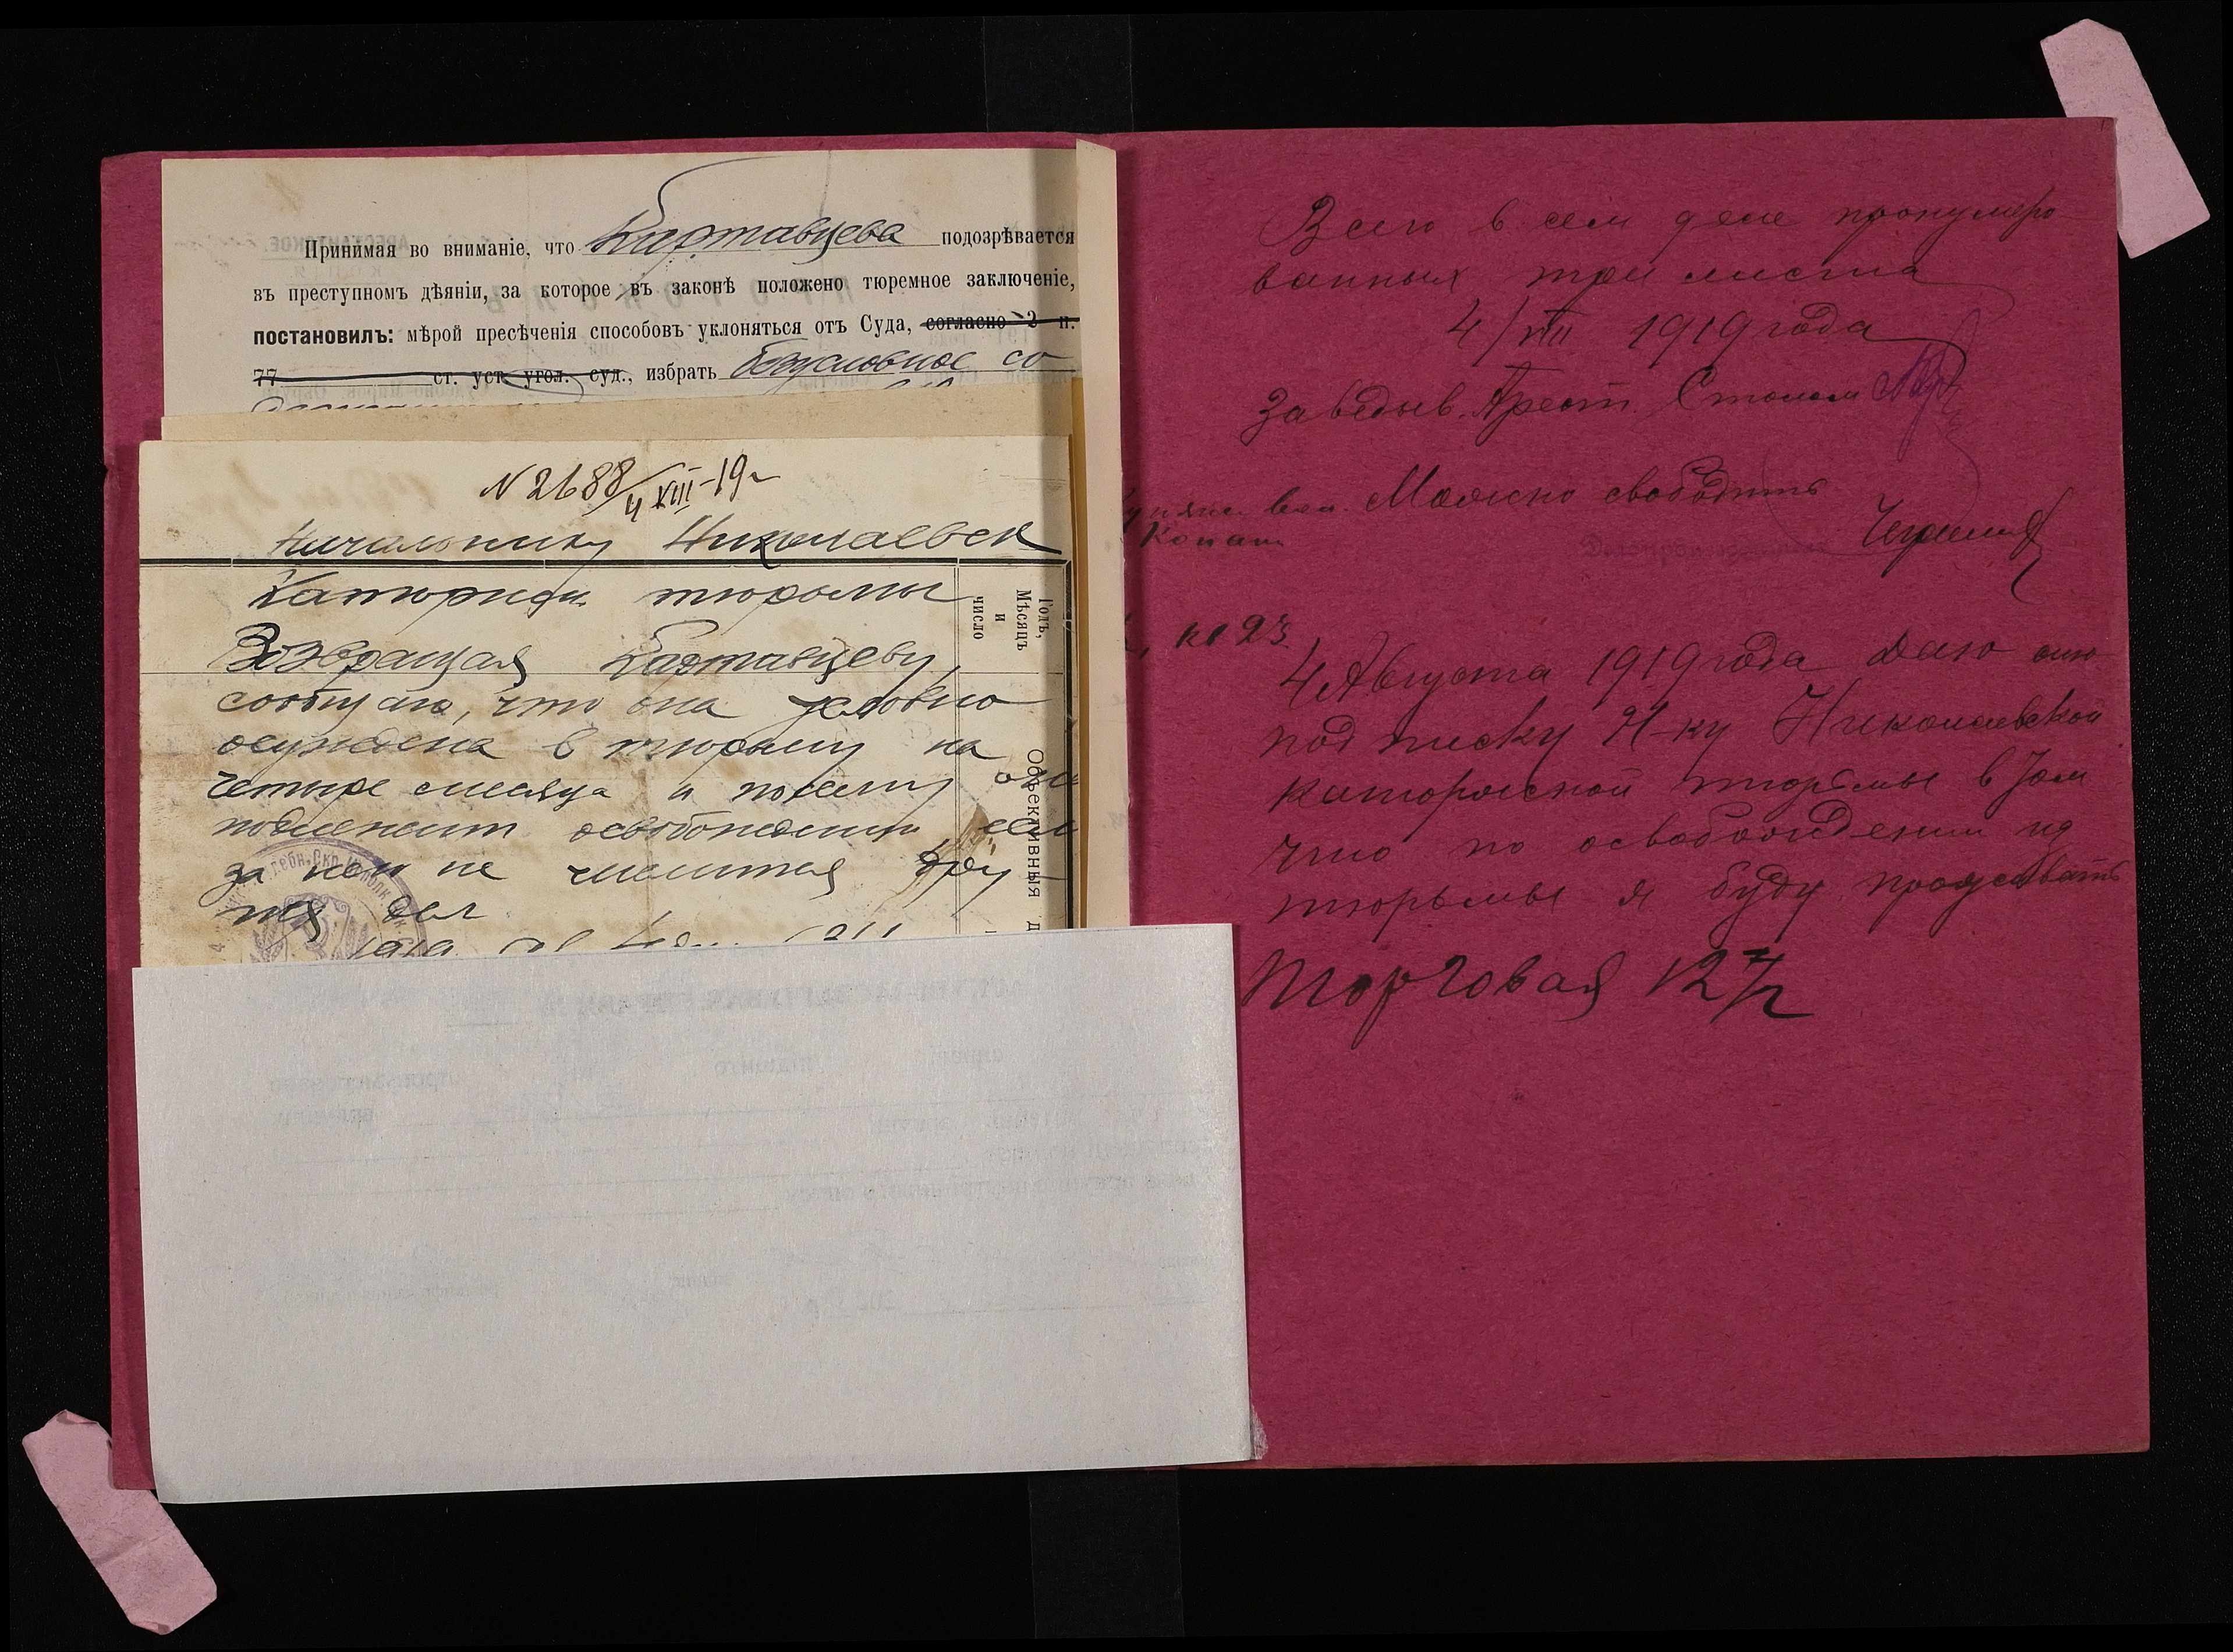 Принимая во вниманіе, что Картавцева подозрѣвается
въ преступномъ дѣяніи, за которое въ законѣ положено тюремное заключеніе,
постановилъ: мѣрой пресѣченія способовъ уклоняться отъ Суда, согласно 2 п.
77 ст. уст. угол. суд., избрать безусловное со
N 2688/4 XIII-19 г
Начальнику Николаевск
Каторжн. тюрьмы
Возвращая Картавцеву,
сообщаю, что она условно
осуждена в тюрьму на
четыре месяца и посему она
подлежит освобождению, если
за ней не числится дру
гих дел
Годъ,
Мѣсяцъ
и
число
Объективныя д
Всего в сем деле пронумеро
ванных три листа
4/VIII 1919 года
Заведыв. Арест. Столом
Можно свободить
кв 23
4 Августа 1919 года Даю сию
подписку Н-ку Николаевской
каторжной тюрьмы в том
что по освобождении из
тюрьмы я буду проживать
Торговая 12